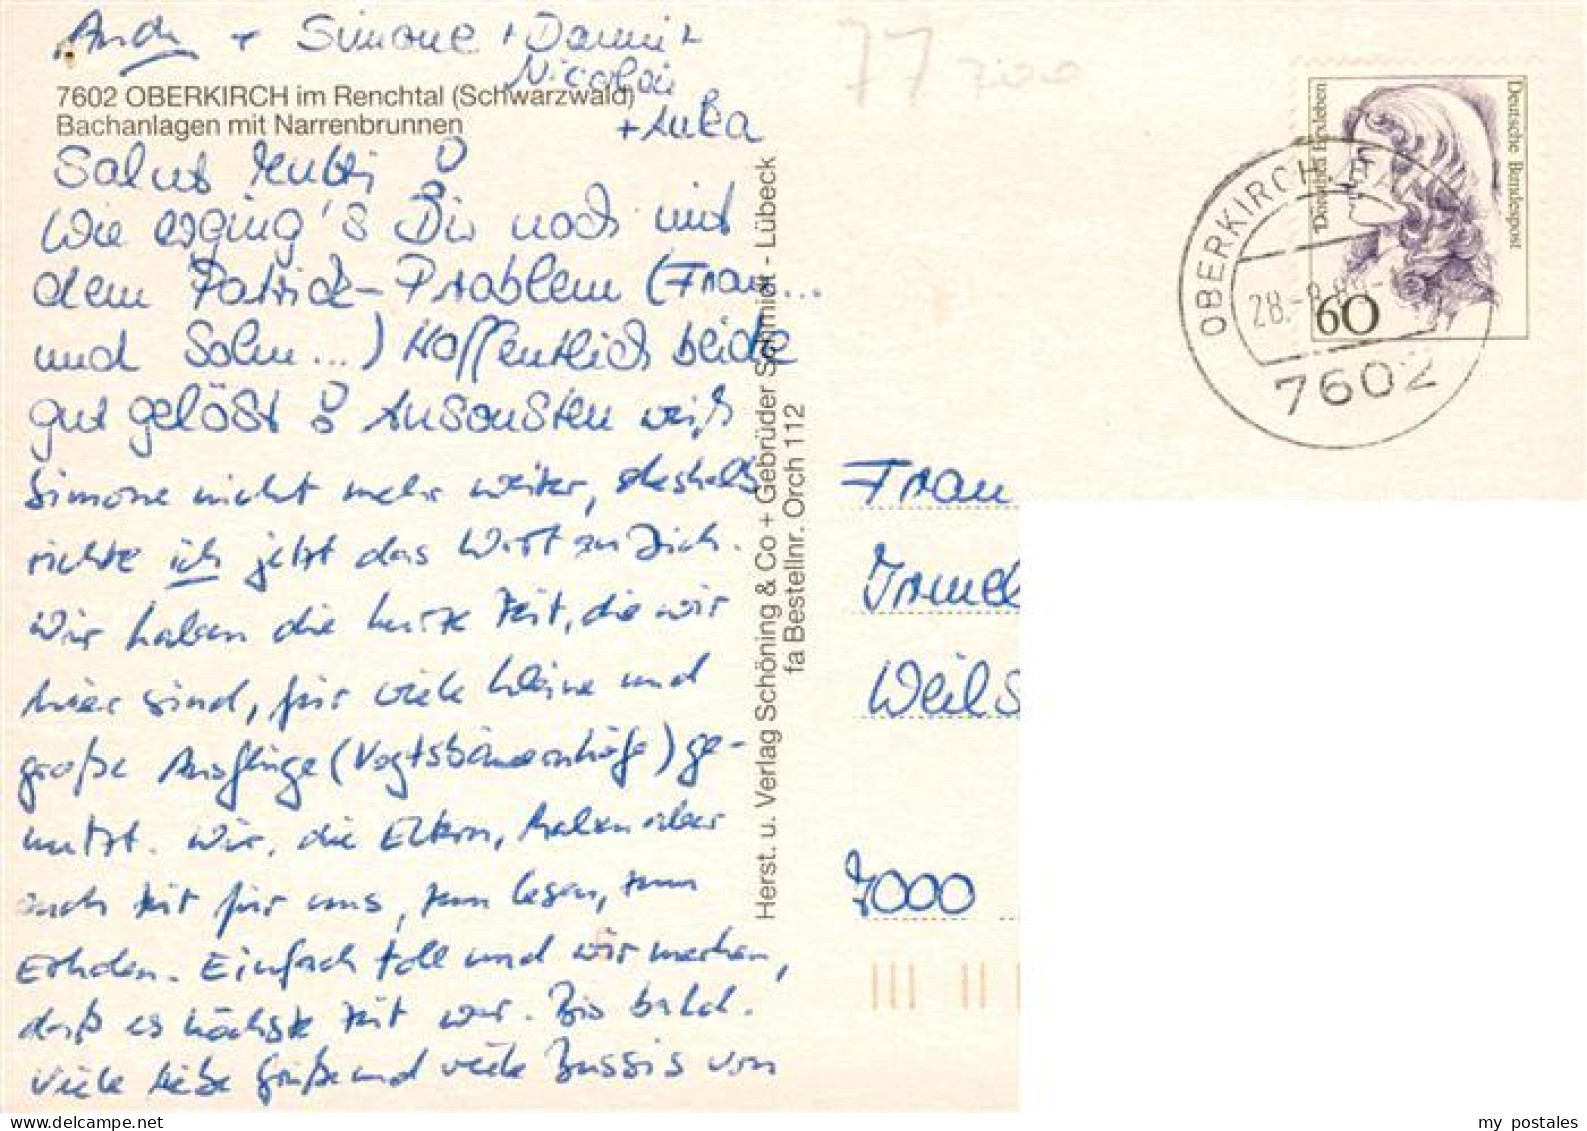 Andi + Simone + Danni +
Nicolai
+ Luka
7602 OBERKIRCH im Renchtal (Schwarzwald)
Bachanlagen mit Narrenbrunnen
Salut Mutti !
Wie erging's Dir noch mit
dem Patrick-Problem (Frau...
und Sohn...) Hoffentlich beide
gut gelöst ! Ansonsten weiß
Simone nicht mehr weiter, deshalb
richte ich jetzt das Wort an Dich.
Wir haben die kurze Zeit, die wir
hier sind, für viele kleine und
große Ausflüge (Vogtsbauernhöfe) ge-
nutzt. Wir, die Eltern, haben aber
auch Zeit für uns, zum lesen, zum
Erholen. Einfach toll und wir merken,
daß es höchste Zeit war. Bis bald.
Viele liebe Grüße und viele Bussis von
Herst. u. Verlag Schöning & Co + Gebrüder Schmidt - Lübeck
fa Bestellnr. Orch 112
77
700
Deutsche Bundespost
Dorothea Erxleben
60
OBERKIRCH, BADEN
28.-8.8
7602
Frau
Weil S
7000
my postales